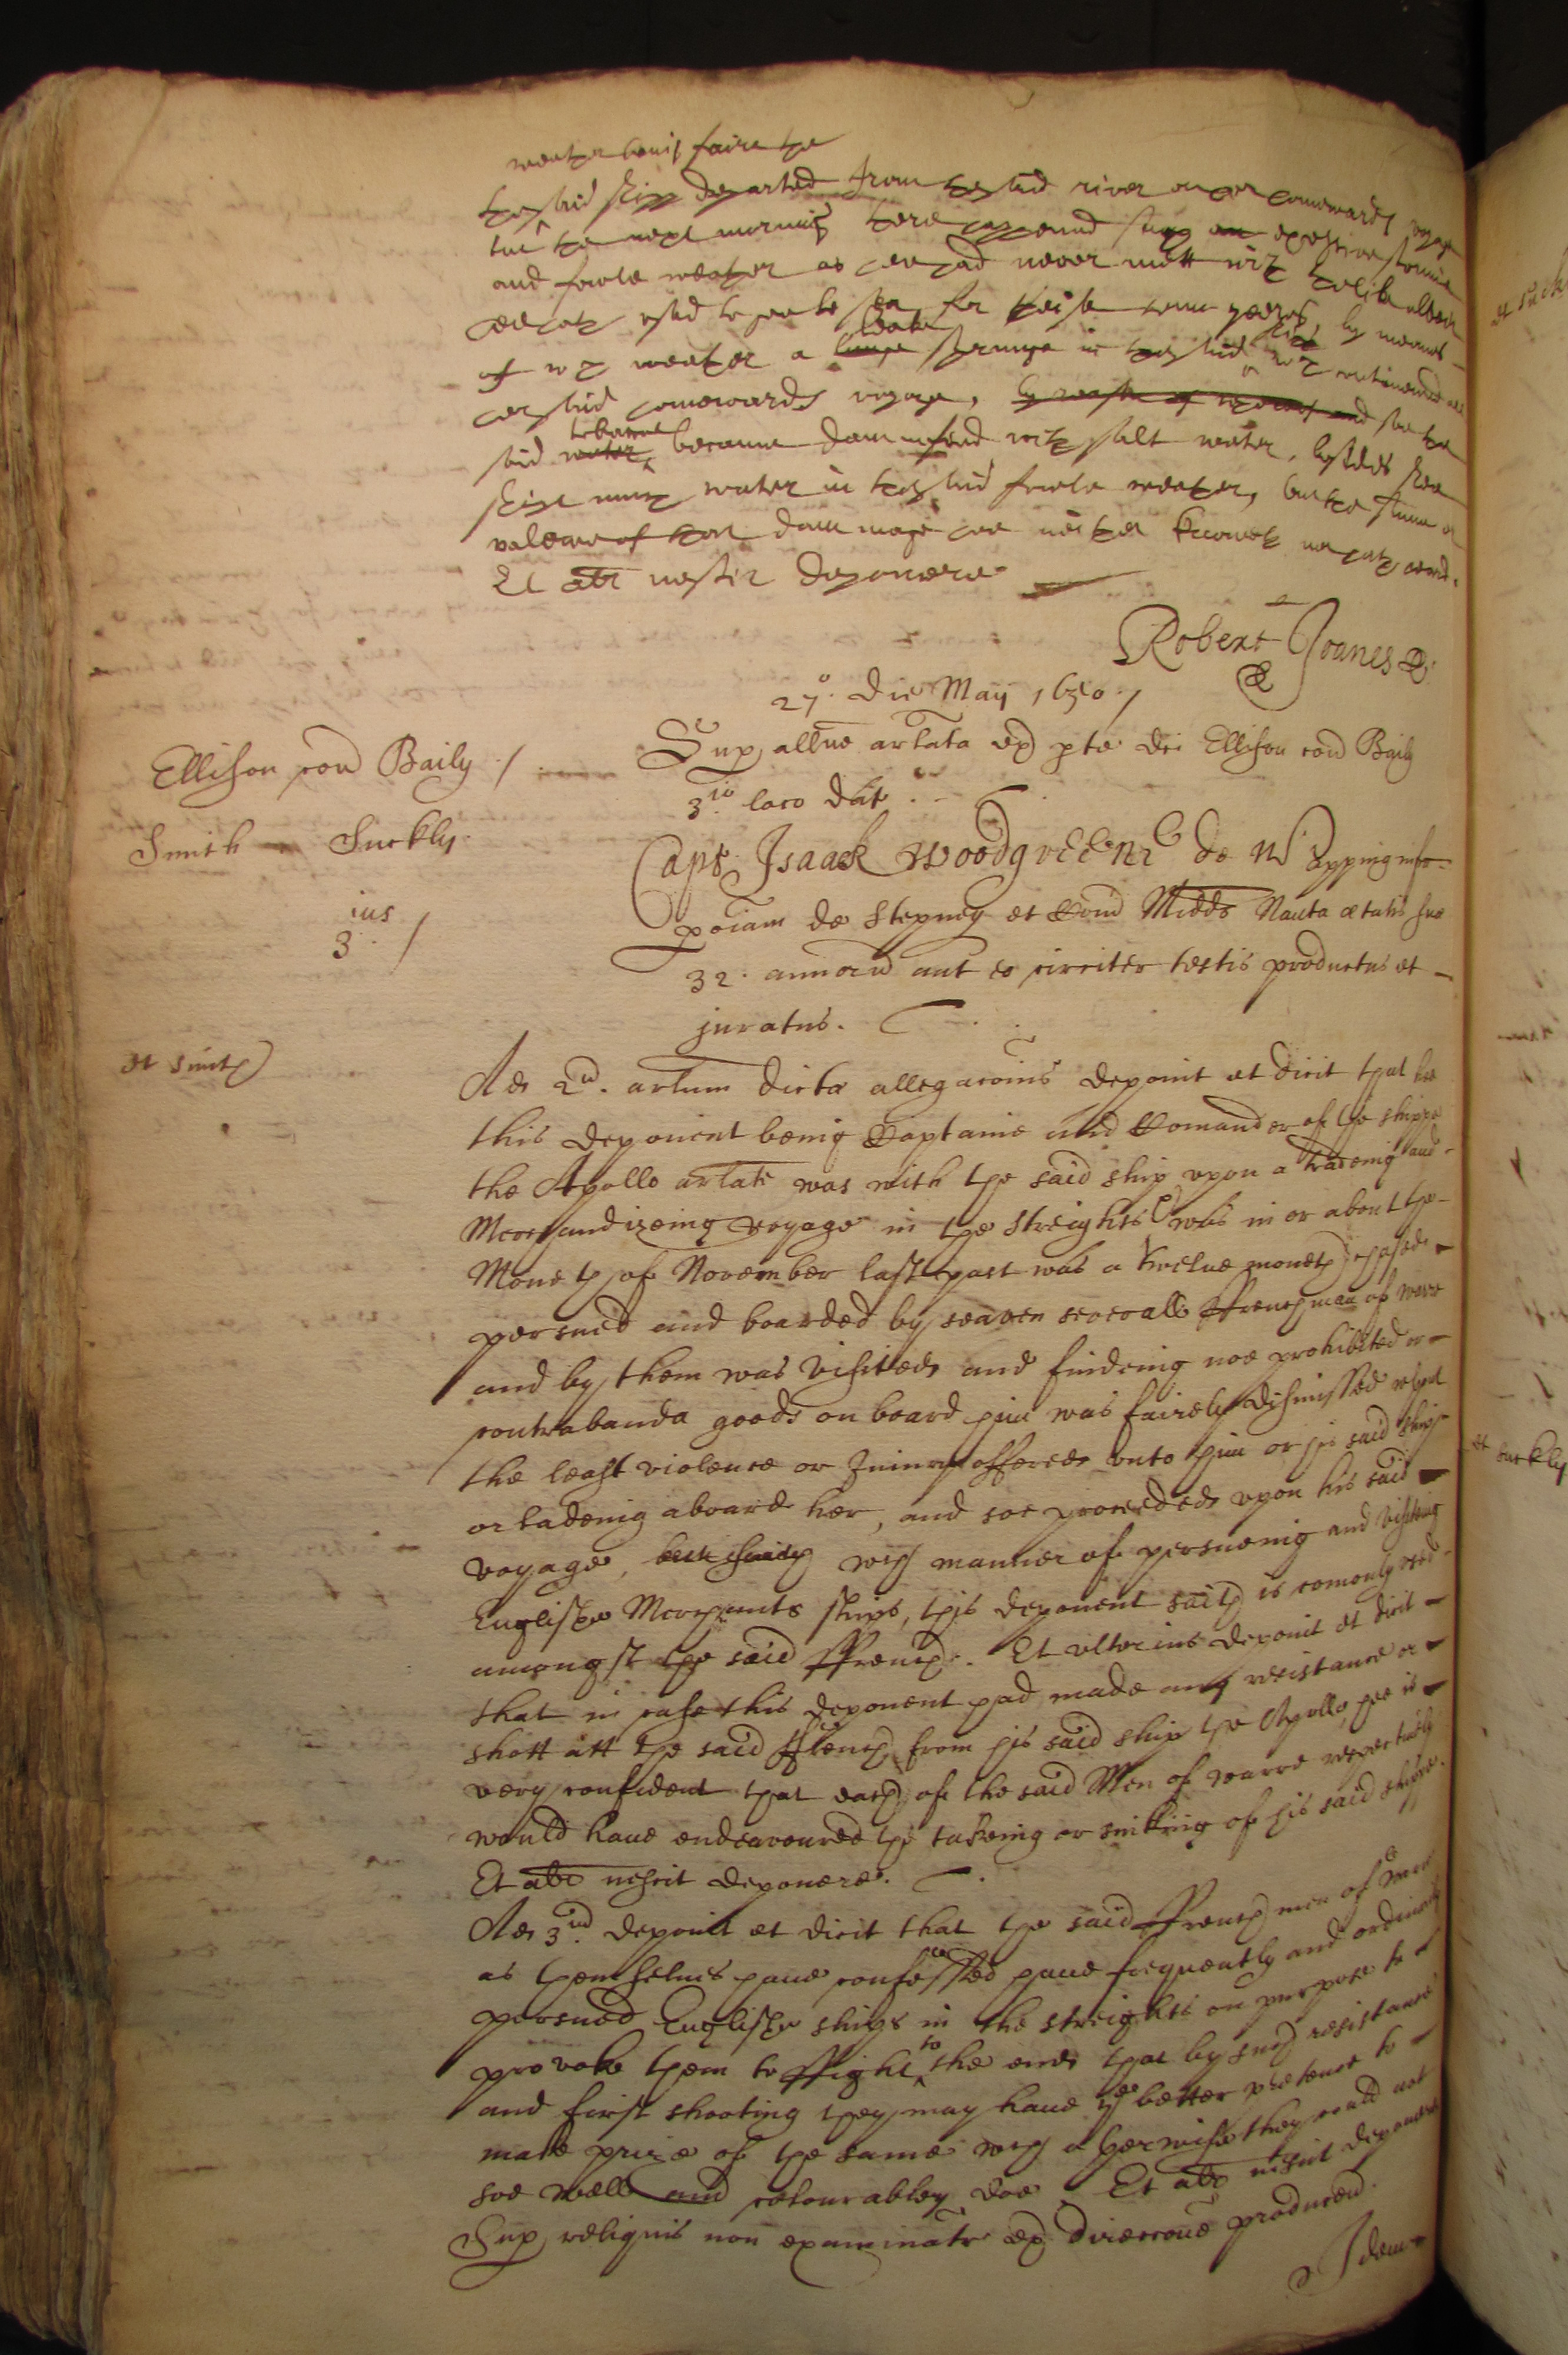 weather being faire the
the said shipp departed from the said river on her homewards voyage
but the next morning there happened such an excessive storme
and fowle weather as hee had never mett with the like albeit
hee hath used to goe to sea for theise tenn yeeres, by meanes
of wch weather a leake sprunge in the said ship wch continued all
her said homewards voyage, by reason of whereof and soe the
said tobaccoe became damnifyed with salt water, besydes shee
shipt much water in the said fowle weather, but the summe or
valeare of that dammage hee neither knoweth nor hath heard.
Et alr nescit deponere
Robert Joanes
27o. die Maij 1650./
Ellison cond Baily ./
Sup allne arlata ex pte dci Ellison cond Baily
3.io loco dat.
Smith Suckly.
Capt. Isaack Woodgreene de Wapping infra
poiam de Stepney et Com Midds Nauta ætatis suæ
ius
3. /
32. annoru aut eo circiter testis productus et
juratus.
rt Smith
Ad 2u. arlum dictæ allegacõnis deponit et dicit that hee
this deponent being Captaine and Comander of the shippe
the Apollo arlate was with the said ship upon a tradeing and
Merchandizeing voyage in the Streights & was in or about the
Moneth of November last past was a twelve moneth chased
persued and boarded by seaven severall ffrenchmen of warr
and by them was visited and findeing noe prohibited or
contrabanda goods on board him was fairely dismissed without
the least violence or Iniury offered unto him or his said ship
or ladeing aboard her, and soe proceeded upon his said
voyage, wch manner of persueing and visiting
Englishe Merchants ships, this deponent saith is comonly used
amongst the said ffrench. Et ulterius deponit et dicit
that in case this deponent had made any resistance or
shott att the said ffrench from his said ship the Apollo, hee is
very confident that each of the said Men of warre respectively
would have endeavoured the takeing or sinking of his said shippe.
Et alr nescit deponere.
Ad 3.ud deponit et dicit that the said ffrench men of warr
as themselves have confessed have frequently and ordinarily
persued Englishe ships in the streights on purpose to
provoke them to ffight to the end that by such resistance
and first shooting they may have ye better pretence to
make prize of the same wch otherwise they could not
soe well and colourabley doe. Et alr nescit deponere
Sup reliquis non examinatr ex direccone producen.
Idem
rt Suckly